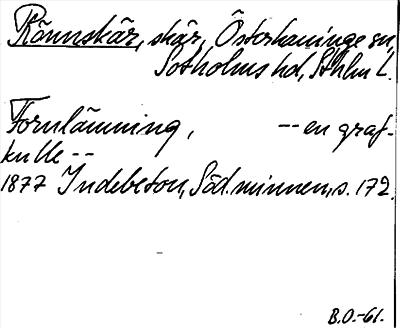 Rönnskär, skär, Österhaninge sn,
Sotholms hd, Sthlm L.
Fornlämning, -- en graf-
kulle --
1877 Indebetou, Söd. minnen, s. 172.
B.O.-61.